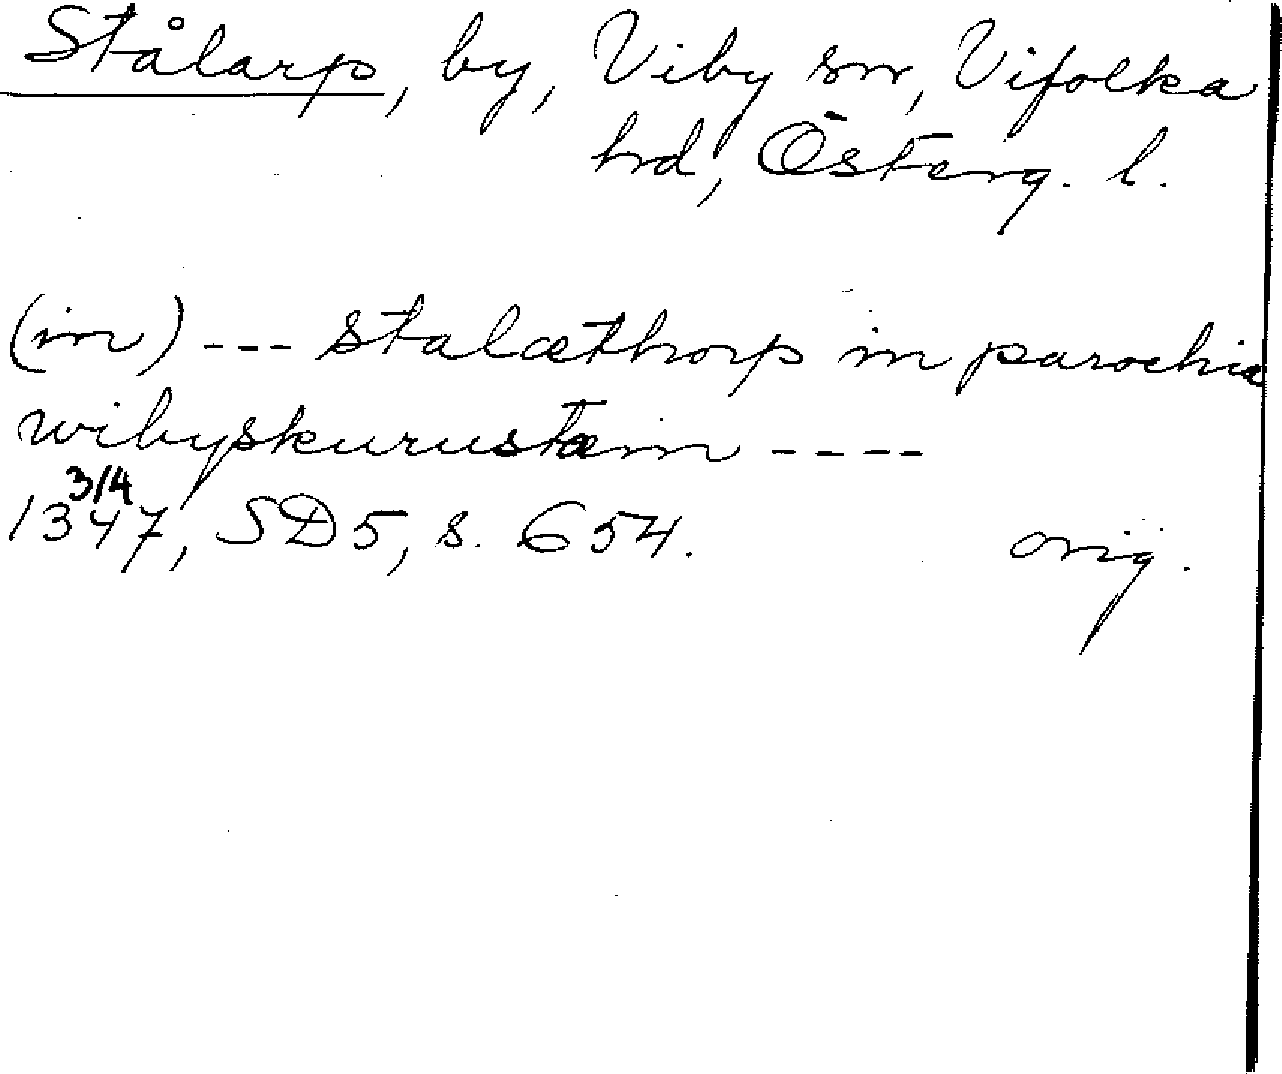 Stålarp, by, Viby sn, Vifolka
hd, Österg. l.
(in) --- stalæthorp in parochia
wibyskurustæin ----
3/4
1347, SD5, s. 654. orig.